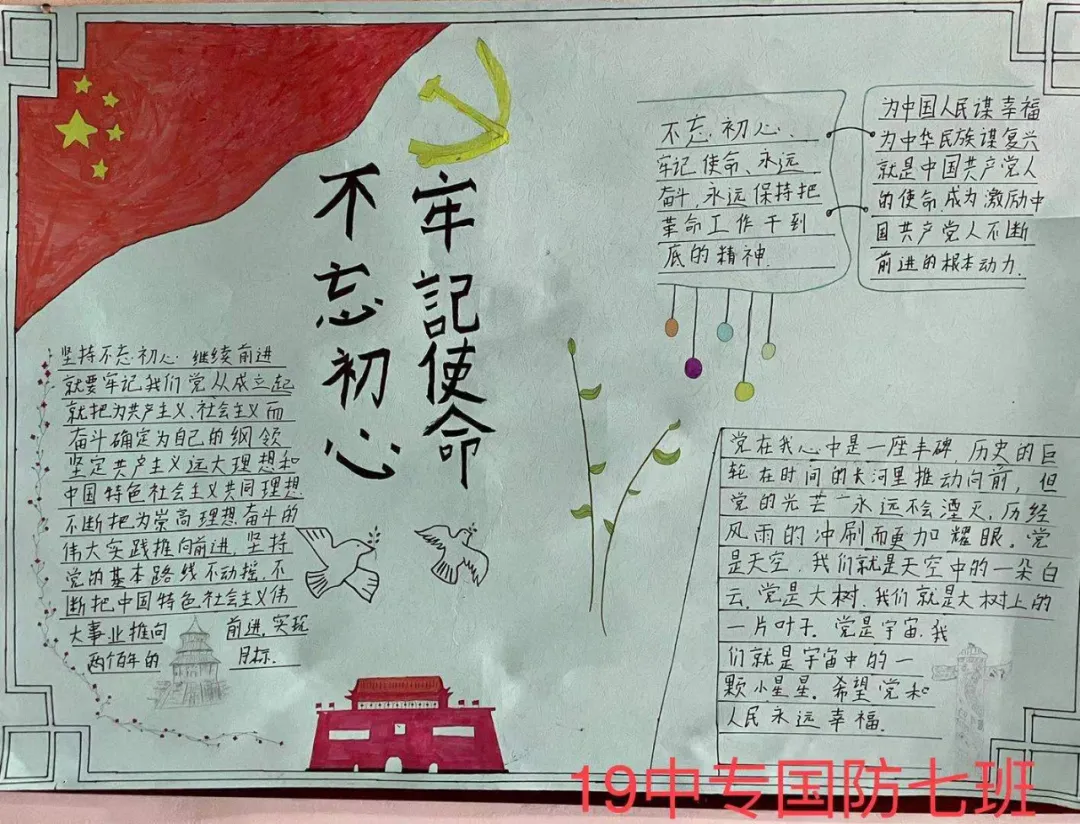 不忘初心
牢記使命
不忘初心、
牢记使命、永远
奋斗,永远保持把
革命工作干到
底的精神.
为中国人民谋幸福
为中华民族谋复兴
就是中国共产党人
的使命,成为激励中
国共产党人不断
前进的根本动力.
坚持不忘初心 继续前进
就要牢记我们党从成立起
就把为共产主义、社会主义而
奋斗确定为自己的纲领
坚定共产主义远大理想和
中国特色社会主义共同理想
不断把为崇高理想奋斗的
伟大实践推向前进,坚持
党的基本路线不动摇,不
断把中国特色社会主义伟
大事业推向 前进,实现
两个百年的 目标.
党在我心中是一座丰碑,历史的巨
轮在时间的大河里推动向前,但
党的光芒 永远不会湮灭,历经
风雨的冲刷而更加耀眼。党
是天空,我们就是天空中的一朵白
云,党是大树,我们就是大树上的
一片叶子.党是宇宙,我
们就是宇宙中的一
颗小星星.希望党和
人民永远幸福.
19中专国防七班